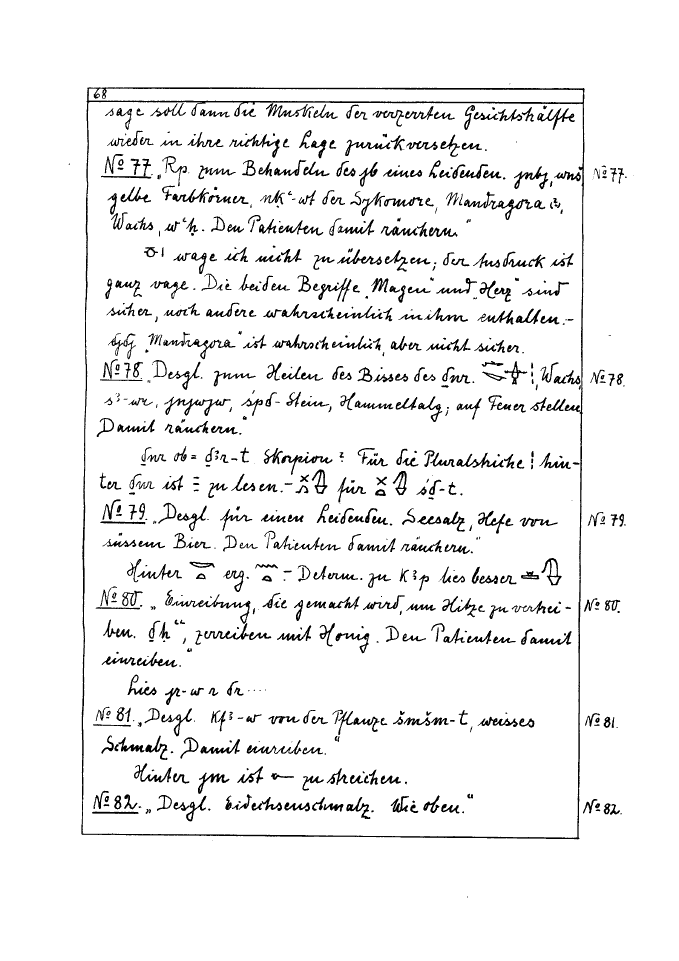 68
sage soll dann die Muskeln der verzerrten Gesichtshälfte
wieder in ihre richtige Lage zurückversetzen.
No 77. „Rp. zum Behandeln des jb eines Leidenden. jnbj, wnš No 77.
gelbe Farbkörner, nḳʿ-wt der Sykomore, Mandragora
Wachs, wʿḥ. Den Patienten damit räuchern."
wage ich nicht zu übersetzen; der Ausdruck ist
ganz vage. Die beiden Begriffe „Magen" und „Herz" sind
sicher, noch andere wahrscheinlich in ihm enthalten.-
„Mandragora" ist wahrscheinlich, aber nicht sicher.
No 78. „Desgl. zum Heilen des Bisses des ḏnr. Wachs, No 78.
s³-wr, jnjwjw, śpd-Stein, Hammeltalg; auf Feuer stellen
Damit räuchern."
ḏnr ob = ḏ³r-t Skorpion? Für die Pluralstriche hin-
ter ḏnr ist zu lesen.- für śḏ-t.
No 79. „Desgl. für einen Leidenden. Seesalz, Hefe von No 79.
süssem Bier. Den Patienten damit räuchern."
Hinter erg. - Determ. zu K³p lies besser
No 80. „Einreibung, die gemacht wird, um Hitze zu vertrei- No 80.
ben. zerreiben mit Honig. Den Patienten damit
einreiben."
Lies jr-w r dr ....
No 81. „Desgl. Kf³-w von der Pflanze šmšm-t, weisses No 81.
Schmalz. Damit einreiben."
Hinter jm ist zu streichen.
No 82. „Desgl. Eidechsenschmalz. Wie oben." No 82.